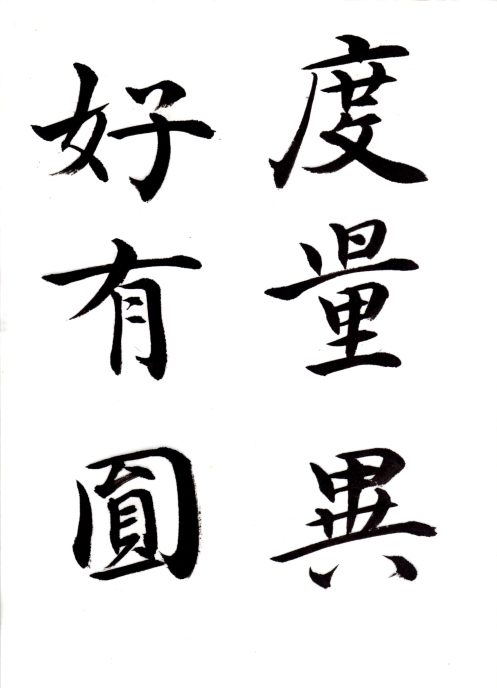 度量異
好有圓